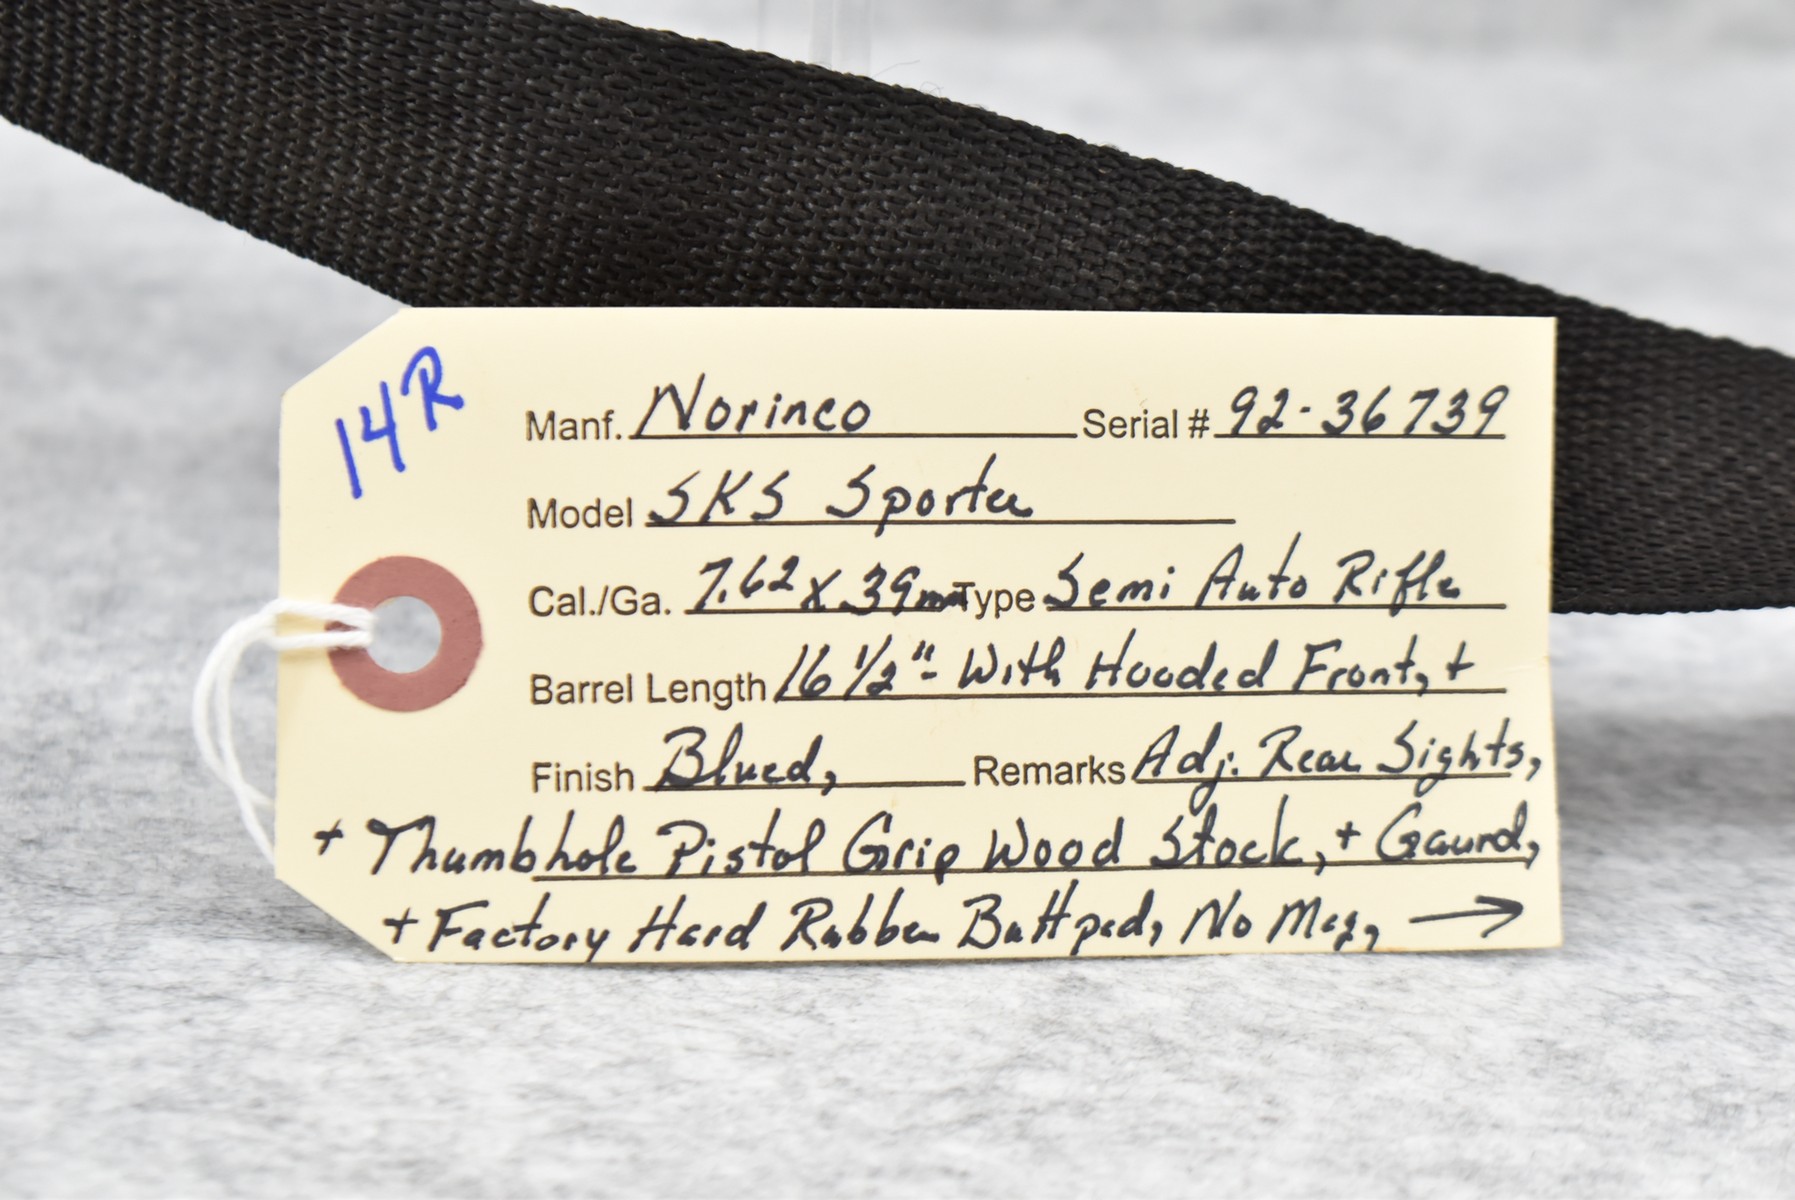 14R
Manf. Norinco Serial # 92-36739
Model SKS Sporter
Cal./Ga. 7.62 x 39mm Type Semi Auto Rifle
Barrel Length 16 1/2"- With Hooded Front, +
Finish Blued, Remarks Adj. Rear Sights,
+ Thumbhole Pistol Grip Wood Stock, + Gaurd,
+ Factory Hard Rubber Buttpad, No Mag, →